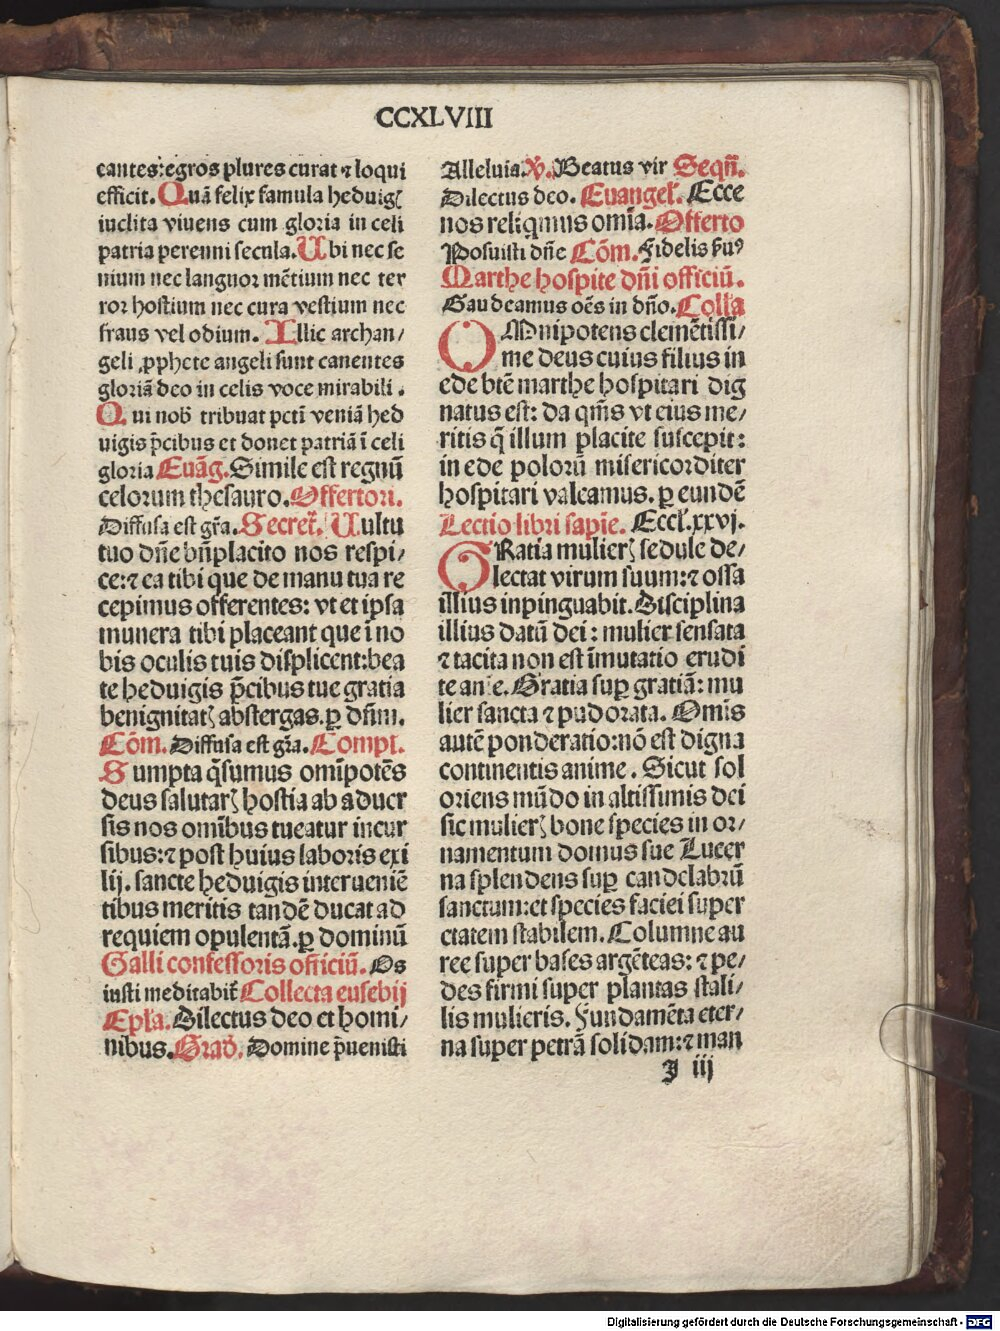 CCXLVIII
cantes: egros plures curat ⁊ loqui
efficit. Quā felix famula heduigꝭ
inclita viuens cum gloria in celi
patria perenni secula. Ubi nec se
nium nec languor mētium nec ter
ror hostium nec cura vestium nec
fraus vel odium. Illic archan/
geli ꝓphete angeli sunt canentes
gloriā deo in celis voce mirabili.
Qui nob̄ tribuat pctī veniā hed
uigis p̄cibus et donet patriā ī celi
gloria Euāg. Simile est regnū
celorum thesauro. Offertori.
Diffusa est gr̄a. Secret̄. Uultu
tuo dn̄e bn̄placito nos respi/
ce: ⁊ ea tibi que de manu tua re
cepimus offerentes: vt et ipsa
munera tibi placeant que ī no
bis oculis tuis displicent: bea
te heduigis p̄cibus tue gratia
benignitatꝭ abstergas. ꝑ dn̄m.
Cōm. Diffusa est gr̄a. Compt.
Sumpta q̄sumus omīpotēs
deus salutarꝭ hostia ab aduer
sis nos omībus tueatur incur
sibus: ⁊ post huius laboris exi
lij. sancte heduigis interueniē
tibus meritis tandē ducat ad
requiem opulentā. ꝑ dominū
Galli confessoris officiū. Os
iusti meditabit̄ Collecta eusebij
Epl̄a. Dilectus deo et homi/
nibus. Grad̄. Domine p̄uenisti
Alleluia. V̄. Beatus vir Seqn̄.
Dilectus deo. Euangel̄. Ecce
nos reliquimus omīa. Offerto
Posuisti dn̄e Cōm. Fidelis s̄uꝰ
Marthe hospite dn̄i officiū.
Gaudeamus oēs in dn̄o. Coll̄a
OMnipotens clemētissi/
me deus cuius filius in
ede btē marthe hospitari dig
natus est: da qm̄s vt eius me/
ritis q̄ illum placite suscepit:
in ede polorū misericorditer
hospitari valeamus. ꝑ eundē
Lectio libri sapīe. Eccl̄. xxvj.
GRatia mulierꝭ sedule de/
lectat virum suum: ⁊ ossa
illius inpinguabit. Disciplina
illius datū dei: mulier sensata
⁊ tacita non est īmutatio erudi
te anīe. Gratia suꝑ gratiā: mu
lier sancta ⁊ pudorata. Omis
autē ponderatio: nō est digna
continentis anime. Sicut sol
oriens mūdo in altissimis dei
sic mulierꝭ bone species in or/
namentum domus sue Lucer
na splendens suꝑ candelabrū
sanctum: et species faciei super
etatem stabilem. Columne au
ree super bases argēteas: ⁊ pe/
des firmi super plantas stali/
lis mulieris. Fundamēta eter/
na super petrā solidam: ⁊ man
J iij
Digitalisierung gefördert durch die Deutsche Forschungsgemeinschaft - DFG